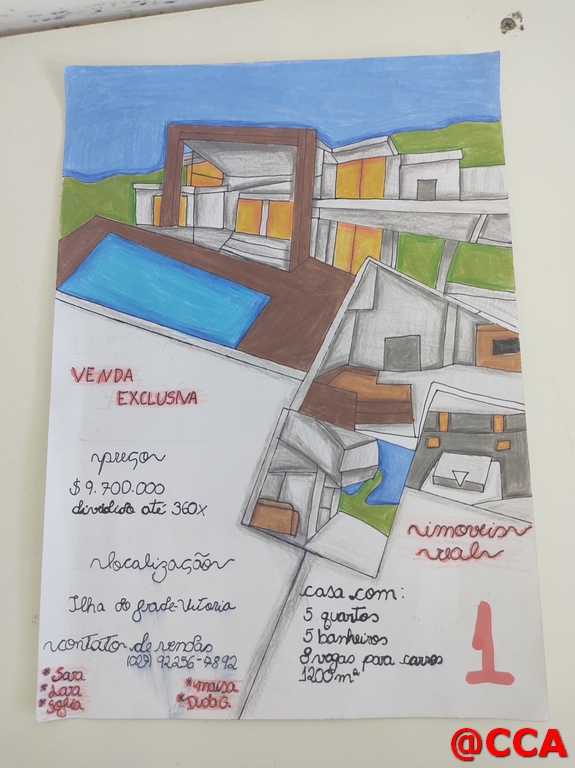 VENDA
EXCLUSIVA
preço
$9.700.000
dividido até 360x
localização
Ilha do frade-Vitoria
contator de vendas
(029) 92256-7892
*Sara
*Lara
*Sofia
*maisa
*Duda G.
imoveis
real
casa com:
5 quartos
5 banheiros
8 vagas para carros
1200m²
1
@CCA